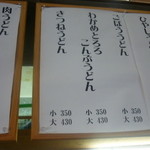 こぼううどん
小 350
大 430
わかめとろろ
こんぶうどん
小 350
大 430
きつねうどん
小 350
大 430
肉うどん